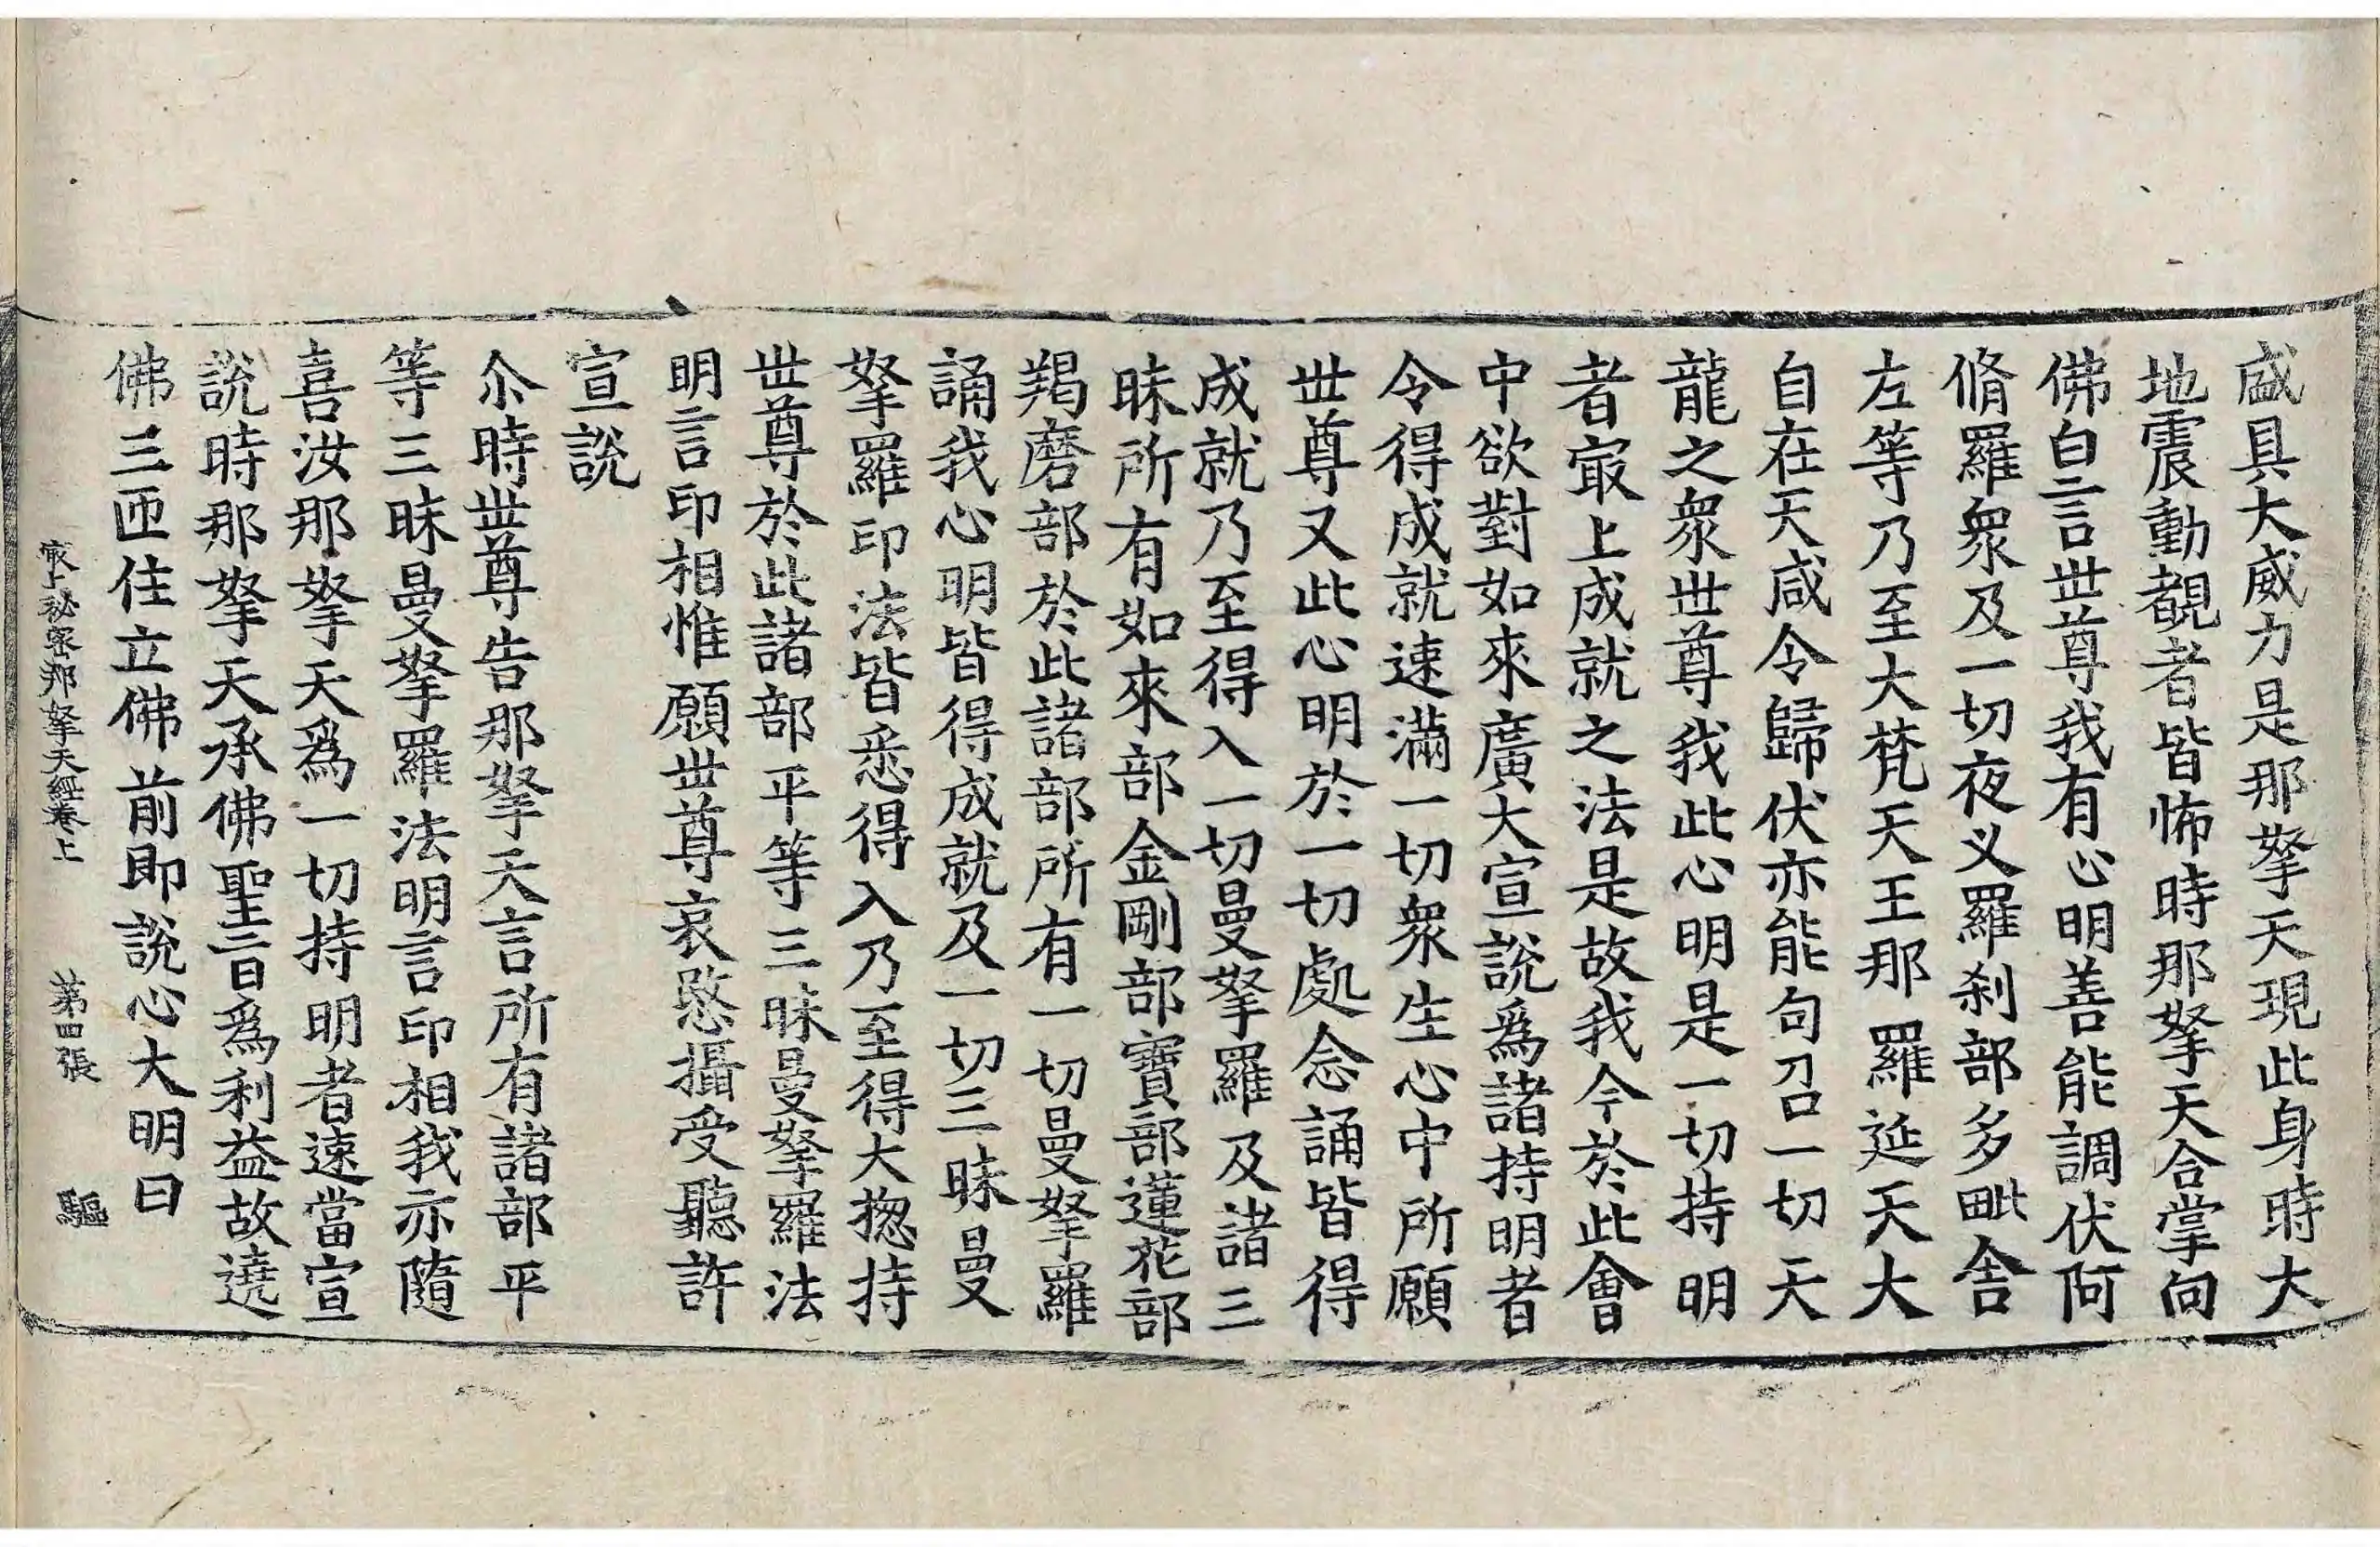 盛具大威力是那拏天現此身時大
地震動覩者皆怖時那拏天合掌向
佛白言世尊我有心明善能調伏阿
脩羅衆及一切夜义羅刹部多毗舍
左等乃至大梵天王那羅延天大
自在天咸令歸伏亦能句召一切天
龍之衆世尊我此心明是一切持明
者㝡上成就之法是故我今於此會
中欲對如來廣大宣說爲諸持明者
令得成就速滿一切衆生心中所願
世尊又此心明於一切處念誦皆得
成就乃至得入一切曼拏羅及諸三
昧所有如來部金剛部寶部蓮花部
羯磨部於此諸部所有一切曼拏羅
誦我心明皆得成就及一切三昧曼
拏羅印法皆悉得入乃至得大揔持
世尊於此諸部平等三昧曼拏羅法
明言印相惟願世尊哀愍攝受聽許
宣說
尒時世尊告那拏天言所有諸部平
等三昧曼拏羅法明言印相我亦隨
喜汝那拏天爲一切持明者速當宣
說時那拏天承佛聖旨爲利益故遶
佛三匝住立佛前即說心大明曰
㝡上秘密那拏天經卷上 第四張 驅